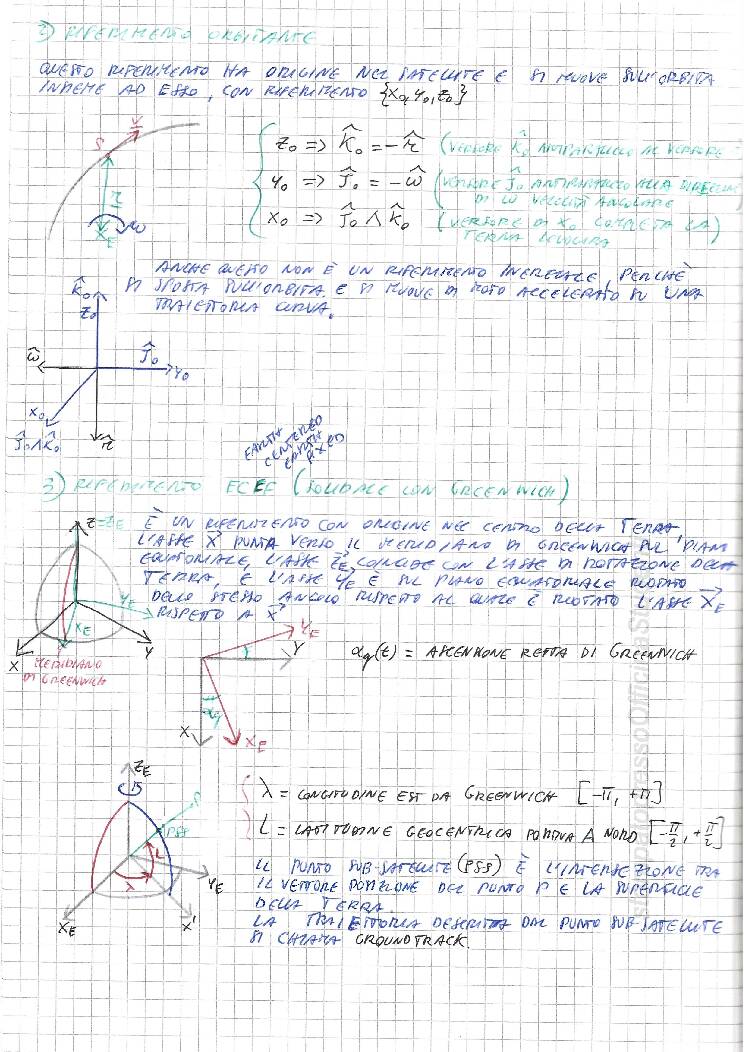 2) RIFERIMENTO ORBITANTE
QUESTO RIFERIMENTO HA ORIGINE NEL SATELLITE E SI MUOVE SULL'ORBITA
INSIEME AD ESSO, CON RIFERIMENTO {X₀, Y₀, Z₀}
S V
r
ω
X_E
Z₀ => K̂₀ = -r̂ (VERSORE K̂₀ ANTIPARALLELO AL VERSORE
Y₀ => Ĵ₀ = -ω̂ (VERSORE Ĵ₀ ANTIPARALLELO ALLA DIREZIONE
DI ω VELOCITÀ ANGOLARE
X₀ => Ĵ₀ ∧ K̂₀ (VERSORE DI X₀ COMPLETA LA)
TERNA LEVOGIRA
ANCHE QUESTO NON È UN RIFERIMENTO INERZIALE, PERCHÈ
SI SPOSTA SULL'ORBITA E SI MUOVE DI MOTO ACCELERATO SU UNA
TRAIETTORIA CURVA.
K̂₀
Z₀
ω̂ Ĵ₀
Y₀
X₀
Ĵ₀∧K̂₀ r̂
EARTH
CENTERED
EARTH
FIXED
3) RIFERIMENTO ECEF (SOLIDALE CON GREENWICH)
Z=Z_E È UN RIFERIMENTO CON ORIGINE NEL CENTRO DELLA TERRA,
L'ASSE X⃗ PUNTA VERSO IL MERIDIANO DI GREENWICH SUL PIANO
EQUATORIALE, L'ASSE Z⃗_E COINCIDE CON L'ASSE DI ROTAZIONE DELLA
TERRA, E L'ASSE Y⃗_E È SUL PIANO EQUATORIALE RUOTATO
DELLO STESSO ANGOLO RISPETTO AL QUALE È RUOTATO L'ASSE X⃗_E
RISPETTO A X⃗
Y_E
X_E
X Y
MERIDIANO
DI GREENWICH
Y_E
Y
α_g
X X_E
α_g(t) = ASCENSIONE RETTA DI GREENWICH
Z_E
P
PSS
L
λ
Y_E
X_E X'
λ = LONGITUDINE EST DA GREENWICH [-π, +π]
L = LATITUDINE GEOCENTRICA POSITIVA A NORD [-π/2, +π/2]
IL PUNTO SUB-SATELLITE (PSS) È L'INTERSEZIONE TRA
IL VETTORE POSIZIONE DEL PUNTO P E LA SUPERFICIE
DELLA TERRA.
LA TRAIETTORIA DESCRITTA DAL PUNTO SUB-SATELLITE
SI CHIAMA GROUNDTRACK.